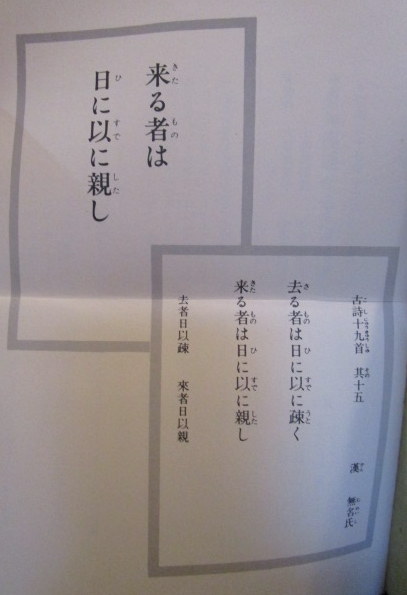 来る者は
日に以に親し
古詩十九首 其十五
漢 無名氏
去る者は日に以に疎く
来る者は日に以に親し
去者日以疎 來者日以親